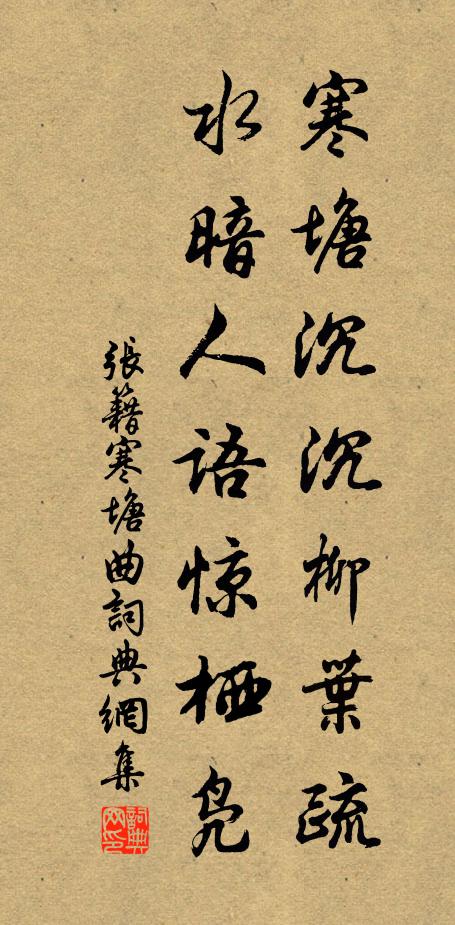 寒塘沉沉柳葉疏
水暗人语惊栖凫
張籍寒塘曲詞典網集
詞典网印